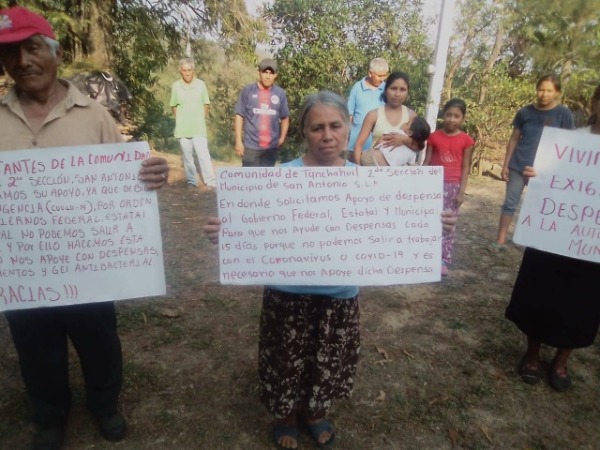 TANTES DE LA COMUNIDAD
2da SECCIÓN, SAN ANTONIO
AMOS SU APOYO, YA QUE DEBIDO
(COVID-19), POR ORDEN
FEDERAL, ESTATAL
AL NO PODEMOS SALIR A
, Y POR ELLO HACEMOS ESTA
NOS APOYE CON DESPENSAS,
MENTOS Y GEL ANTIBACTERIAL
GRACIAS!!!
Comunidad de Tanchahuil 2da Sección del
Municipio de San Antonio S.L.P.
En donde Solicitamos Apoyo de despensa
al Gobierno Federal, Estatal y Municipal
Para que nos Ayude con Despensas Cada
15 días porque no podemos Salir a trabajar
con el Coronavirus o covid-19 y es
necesario que nos Apoye dicha Despensa
VIVI
EXIG
DESPE
A LA AUTO
MUN